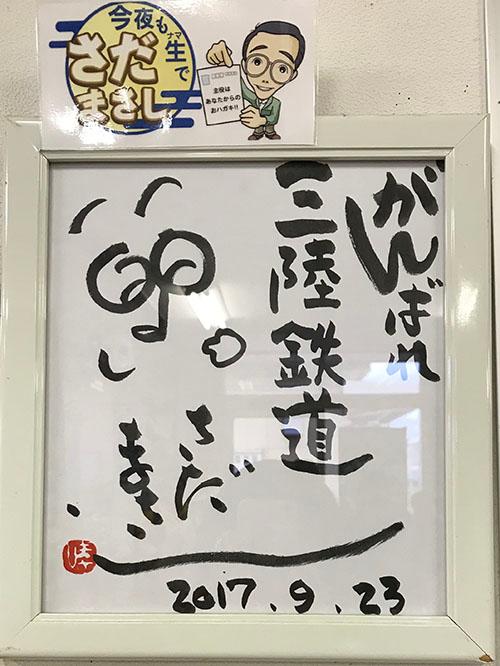 今夜も
生で
ナマ
さだ
まさし
主役は
あなたからの
おハガキ!!
がんばれ
三陸鉄道
さだ
まさし
2017.9.23